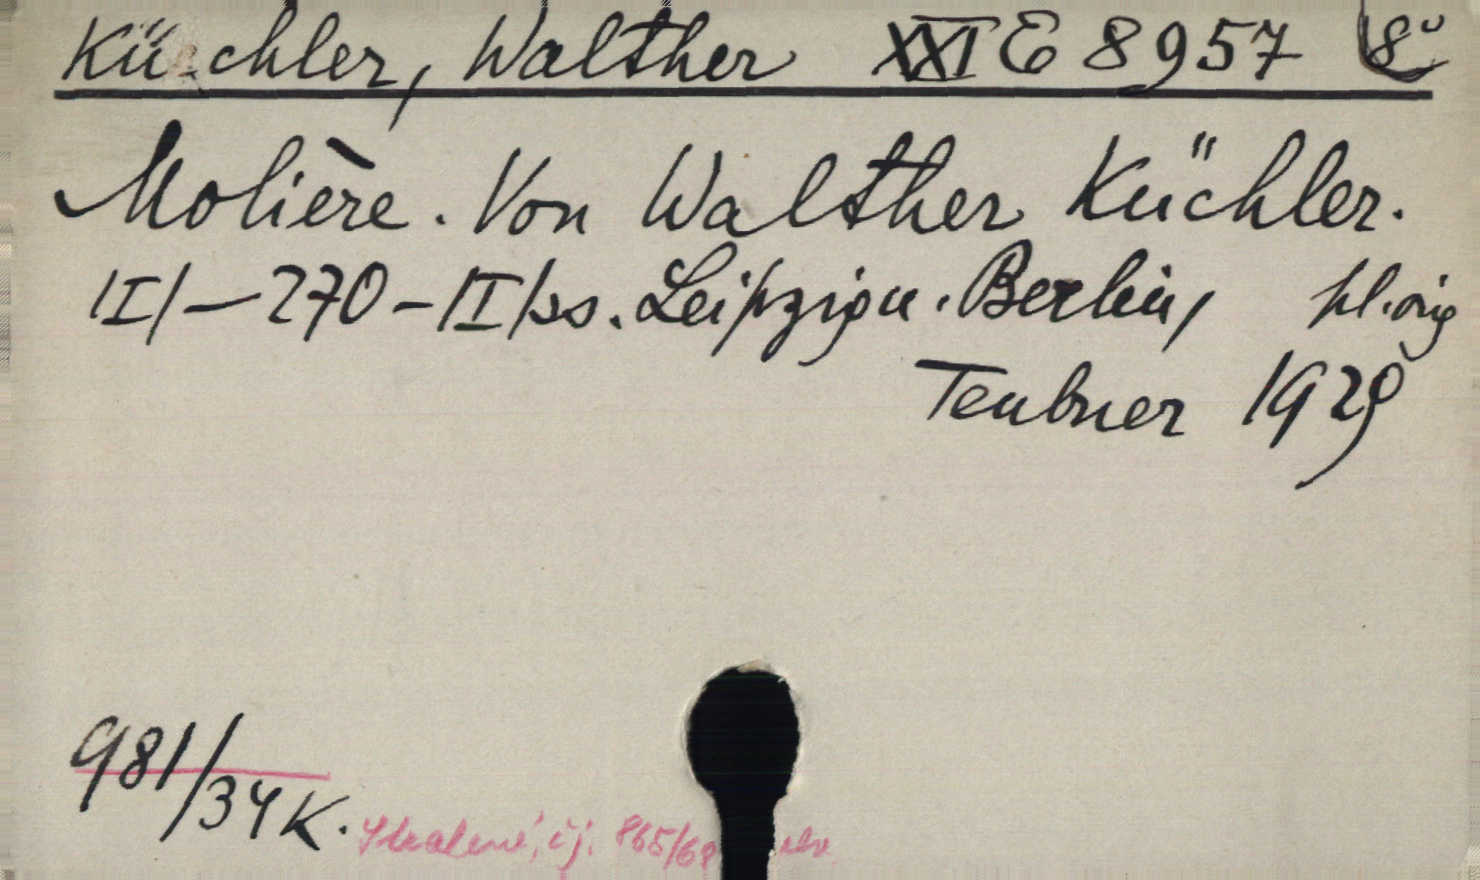 Küchler, Walther XXI E 8957 8°
Molière. Von Walther Küchler.
/I/ – 270 – /I/ ss. Leipzig u. Berlin, pl. orig
Teubner 1929
981/34 K.
čj. 865/68